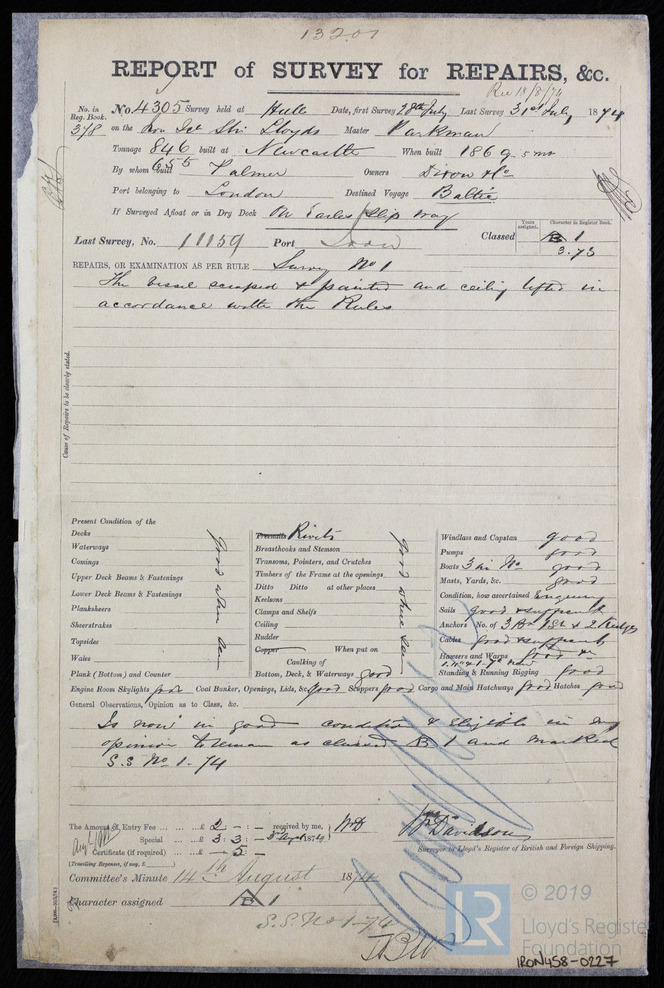 13201
REPORT of SURVEY for REPAIRS, &c.
Rec 18/8/74
No. in Reg. Book. No. 4305 Survey held at Hull Date, first Survey 28th July Last Survey 31st July 1874
378 on the Iron Scr Str Lloyds Master Parkman
Tonnage 846 built at Newcastle When built 1869-5 mo
655
By whom built Palmer Owners Dixon & Co
Port belonging to London Destined Voyage Baltic
If Surveyed Afloat or in Dry Dock On Earles Slip way
Years assigned. Character in Register Book.
Last Survey, No. 11159 Port Classed B 1
3.73
REPAIRS, OR EXAMINATION AS PER RULE Survey No 1
The vessel scraped & painted and ceiling lifted in
accordance with the Rules
Cause of Repairs to be clearly stated.
Present Condition of the
Decks
Waterways
Comings
Upper Deck Beams & Fastenings
Lower Deck Beams & Fastenings
Planksheers
Sheerstrakes
Topsides
Wales
Plank (Bottom) and Counter
good where seen
Treenails Rivets
Breasthooks and Stemson
Transoms, Pointers, and Crutches
Timbers of the Frame at the openings
Ditto Ditto at other places
Keelsons
Clamps and Shelfs
Ceiling
Rudder
Copper When put on
Caulking of
Bottom, Deck, & Waterways good
good where seen
Windlass and Capstan good
Pumps good
Boats 3 in No. good
Masts, Yards, &c. good
Condition, how ascertained Enquiry
Sails good & sufficient
Anchors No. of 3 Br 1 St & 2 Kedges
Cables good & sufficient
Hawsers and Warps good
Standing & Running Rigging good
Engine Room Skylights good Coal Bunker, Openings, Lids, &c. good Scuppers good Cargo and Main Hatchways good Hatches good
General Observations, Opinion as to Class, &c.
Is now in good condition & eligible in my
opinion to remain as classed B 1 and marked
S.S No 1-74
The Amount of Entry Fee £ 2 - : - received by me,
Special £ 3 : 3 : - 1874
Certificate (if required) - 5
(Travelling Expenses, if any, £ )
WD
Wm Davidson
Surveyor to Lloyd's Register of British and Foreign Shipping.
Committee's Minute 14th August 1874
Character assigned B 1
S.S. No 1-74
© 2019
LR
Lloyd's Register
Foundation
IRON458-0227